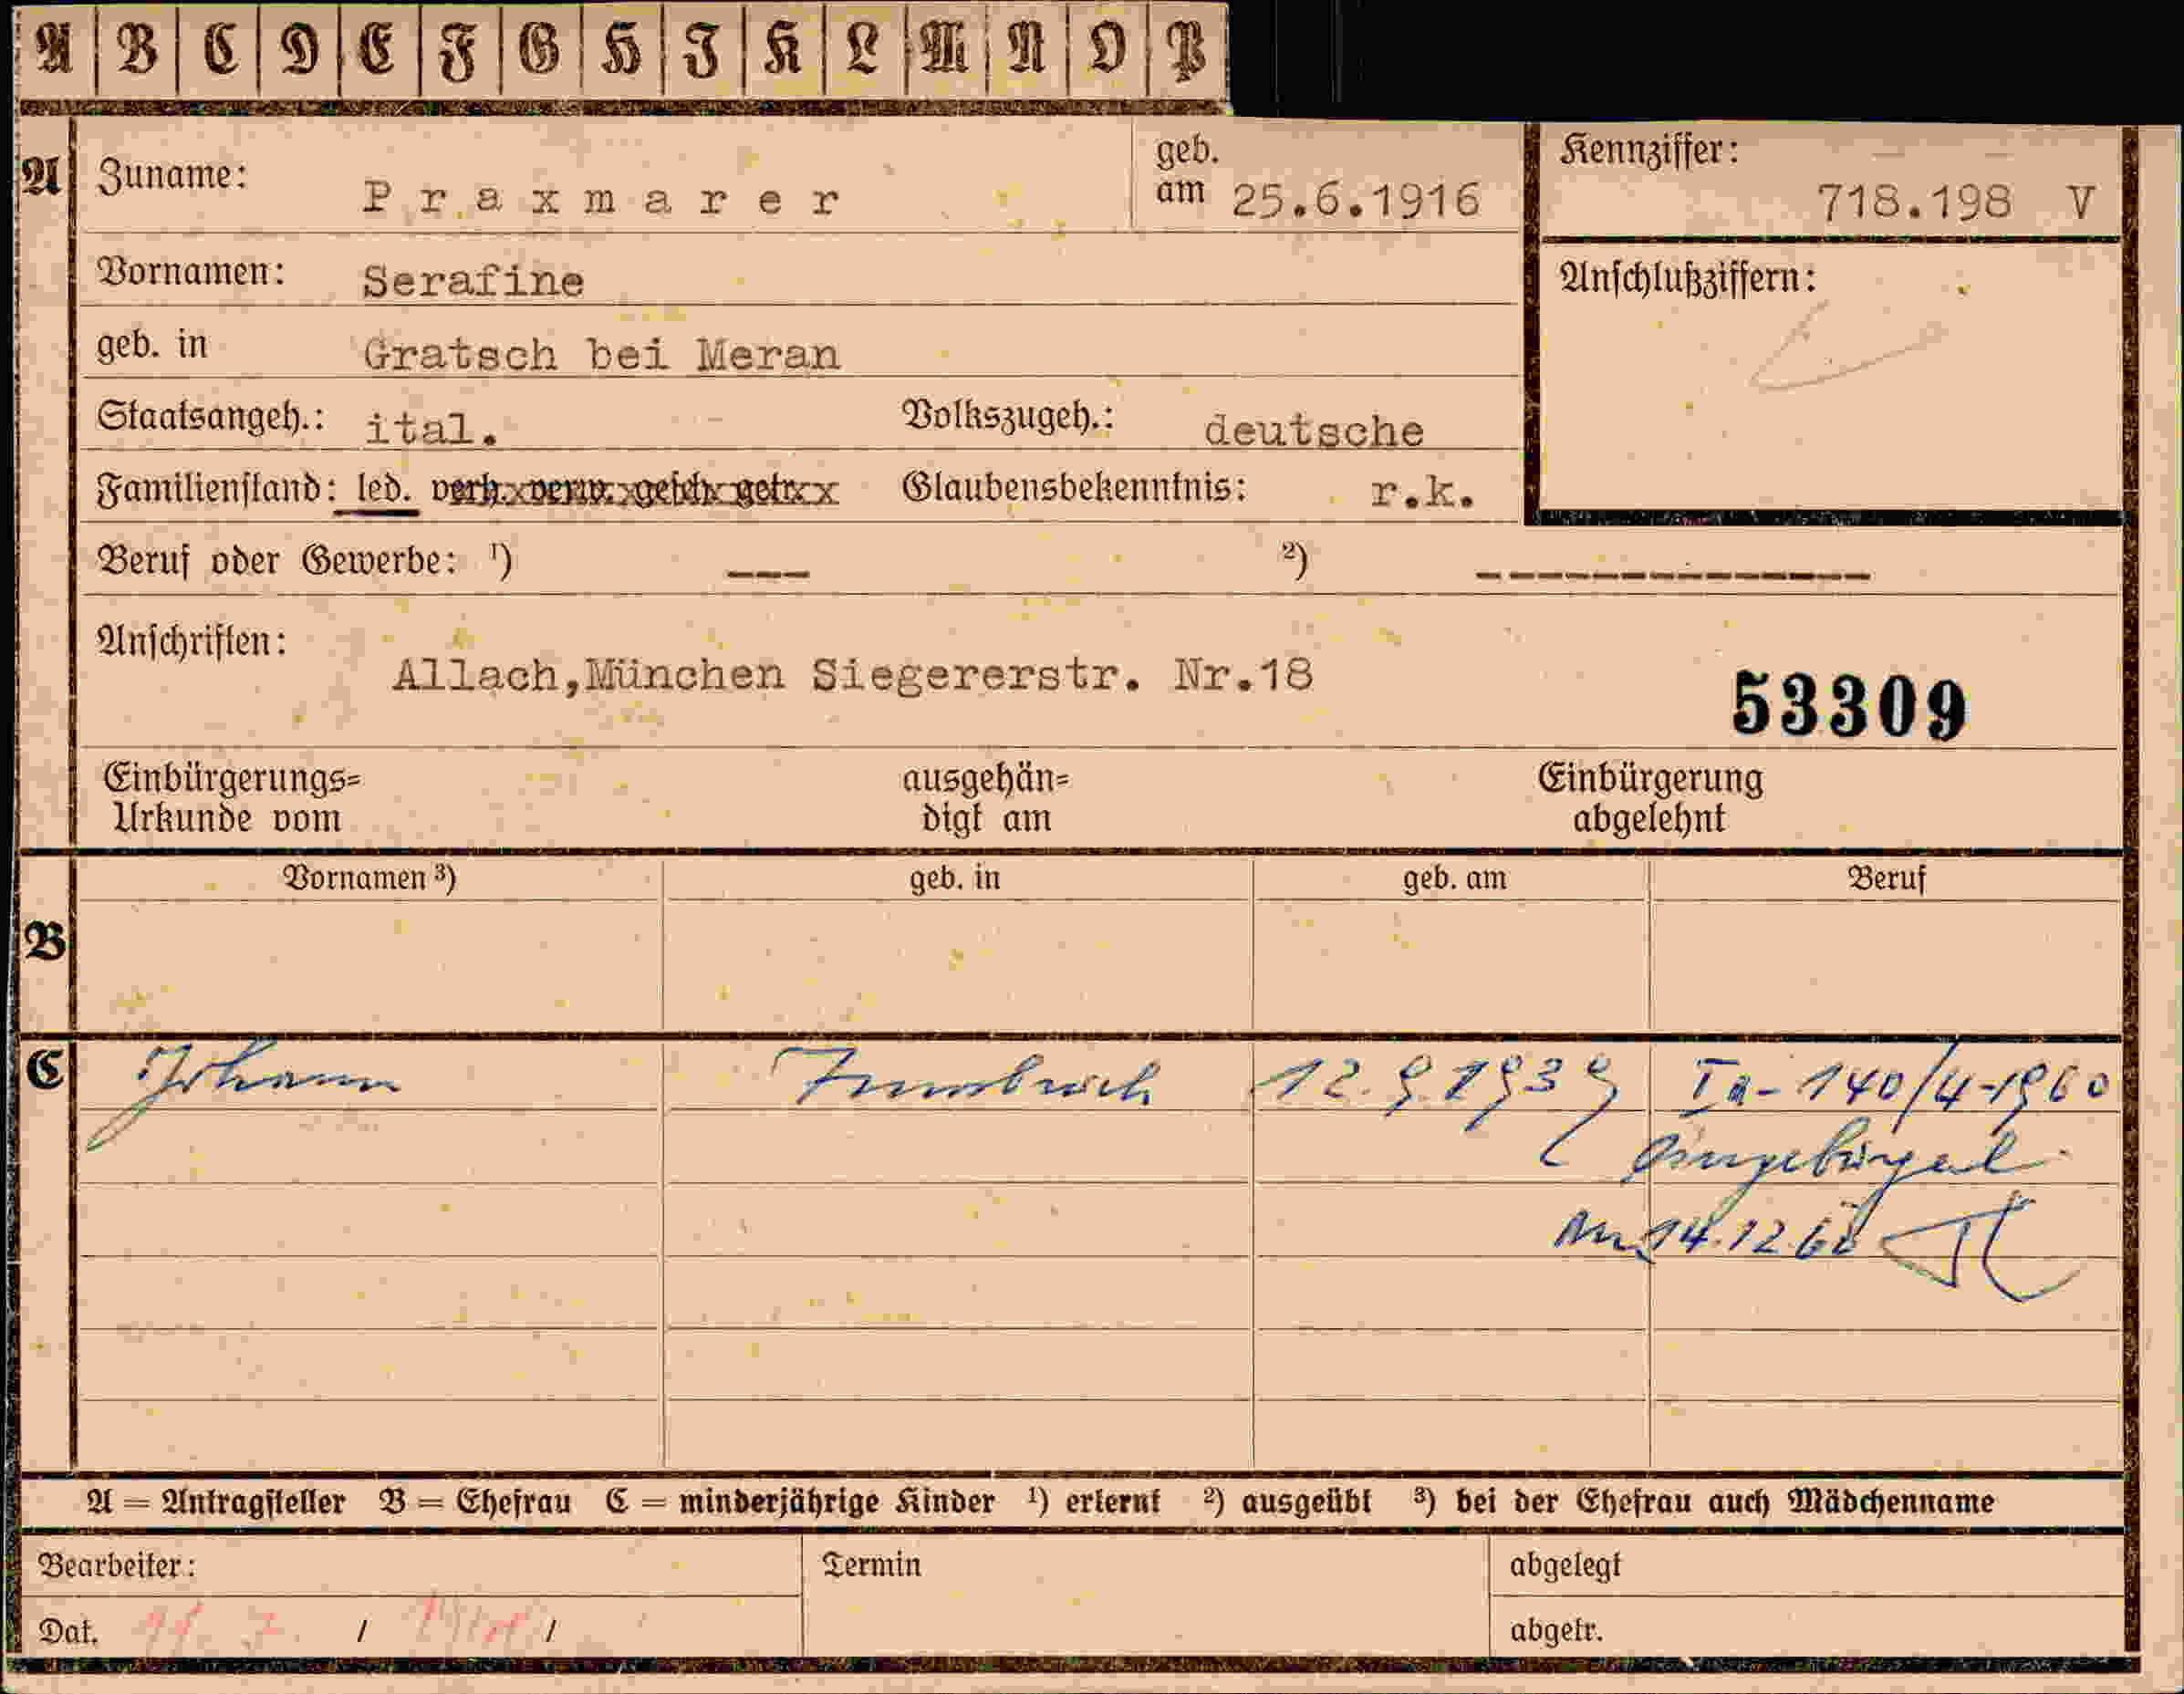 A B C D E F G H I K L M N O P
A Zuname: Praxmarer geb. am 25.6.1916 Kennziffer: 718.198 V
Vornamen: Serafine Anschlußziffern:
geb. in Gratsch bei Meran
Staatsangeh.: ital. Volkszugeh.: deutsche
Familienstand: led. verh. verw. gesch. getr. Glaubensbekenntnis: r.k.
Beruf oder Gewerbe: ¹) --- ²) --------------
Anschriften: Allach,München Siegererstr. Nr.18
53309
Einbürgerungs= ausgehän= Einbürgerung
Urkunde vom digt am abgelehnt
Vornamen ³) geb. in geb. am Beruf
B
C Johann Innsbruck 12.9.1939 Ia-140/4-1960
eingebürgert
am 14.12.60
A = Antragsteller B = Ehefrau C = minderjährige Kinder ¹) erlernt ²) ausgeübt ³) bei der Ehefrau auch Mädchenname
Bearbeiter: Termin abgelegt
Dat. / / abgetr.